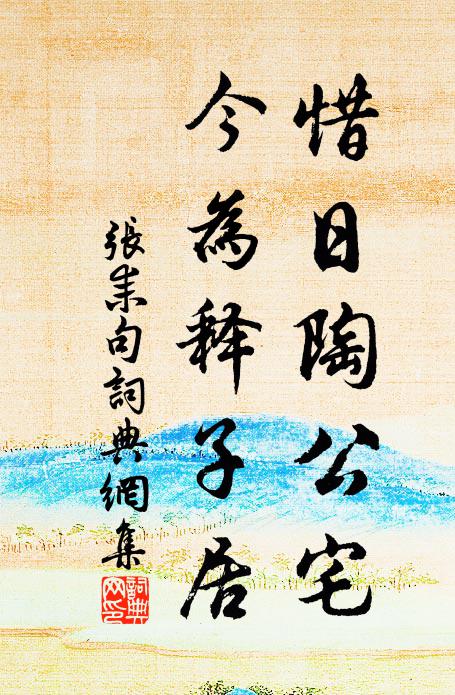 惜日陶公宅
今為释子居
張耒句詞典網集
詞典網印